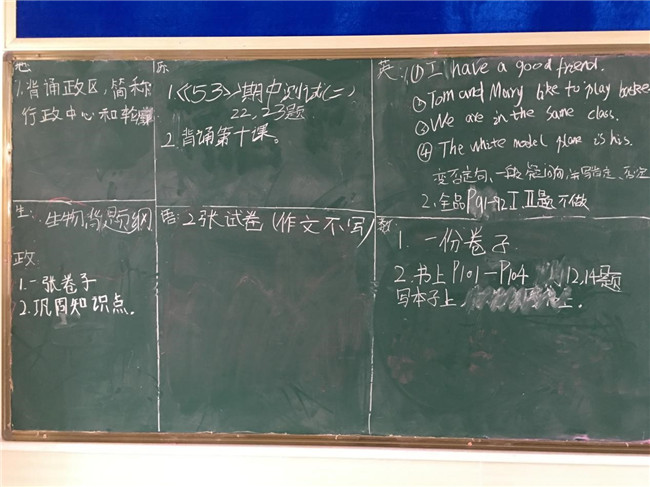 地:
1.背诵政区,简称
行政中心和轮廓
历:
1.《53》期中测试(二)
22,23题
2.背诵第十课。
英:① I have a good friend.
② Tom and Mary like to play
③ We are in the same class.
④ The white model plane is his.
变否定句、一般疑问句,并写肯定、否定
2.全品P91-92 Ⅰ Ⅱ题不做
生:生物背题纲
政:
1.一张卷子
2.巩固知识点.
语:2张试卷(作文不写)
数:
1.一份卷子
2.书上P101—P104 12,14题
写本子上,
上.